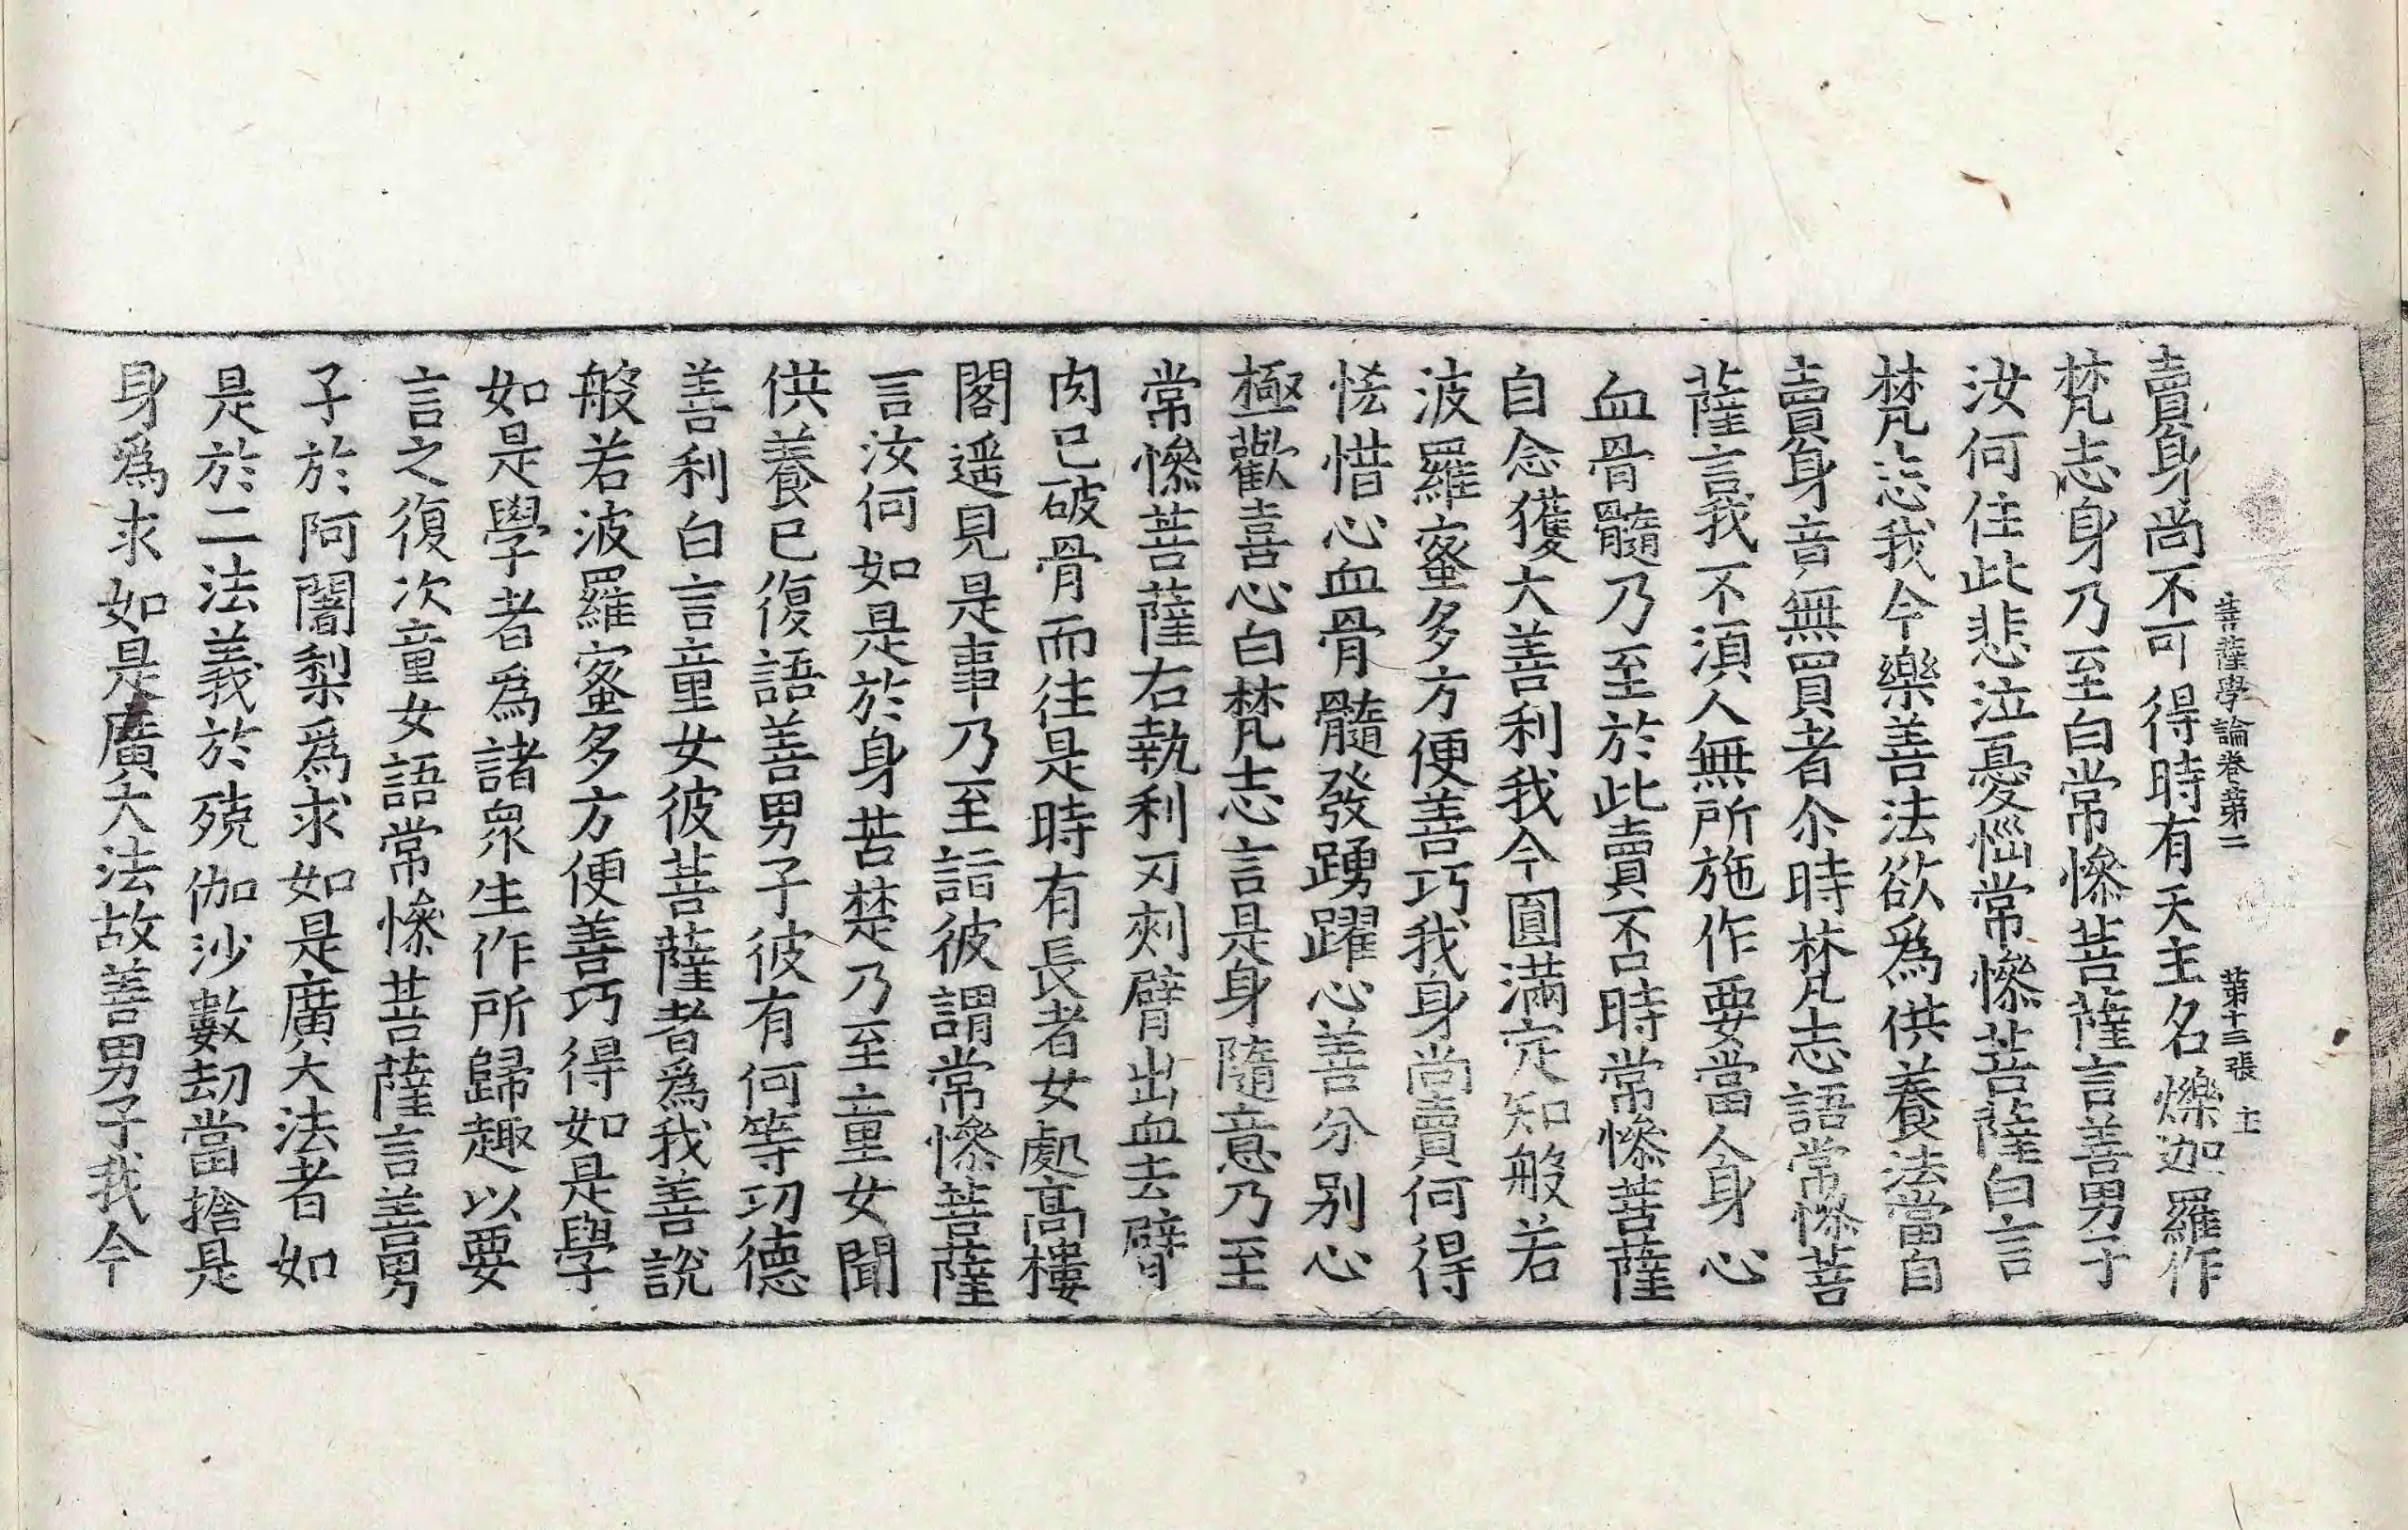 菩薩學論卷第二 第十三張 主
賣身尚不可得時有天主名爍迦羅作
梵志身乃至白常慘菩薩言善男子
汝何住此悲泣憂惱常慘菩薩白言
梵志我今樂善法欲為供養法當自
賣身音無買者尒時梵志語常慘菩
薩言我不湏人無所施作要當人身心
血骨髓乃至於此賣不時常慘菩薩
自念獲大善利我今圓滿定知般若
波羅蜜多方便善巧我身尚賣何得
恡惜心血骨髓發踴躍心善分别心
極歡喜心白梵志言是身隨意乃至
常慘菩薩右執利刃刾臂出血去臂
肉已破骨而往是時有長者女處高樓
閣遥見是事乃至詣彼謂常慘菩薩
言汝何如是於身苦楚乃至童女聞
供養已復語善男子彼有何等功德
善利白言童女彼菩薩者為我善說
般若波羅蜜多方便善巧得如是學
如是學者為諸眾生作所歸趣以要
言之復次童女語常慘菩薩言善男
子於阿闍梨為求如是廣大法者如
是於二法義於殑伽沙數劫當捨是
身為求如是廣大法故善男子我今